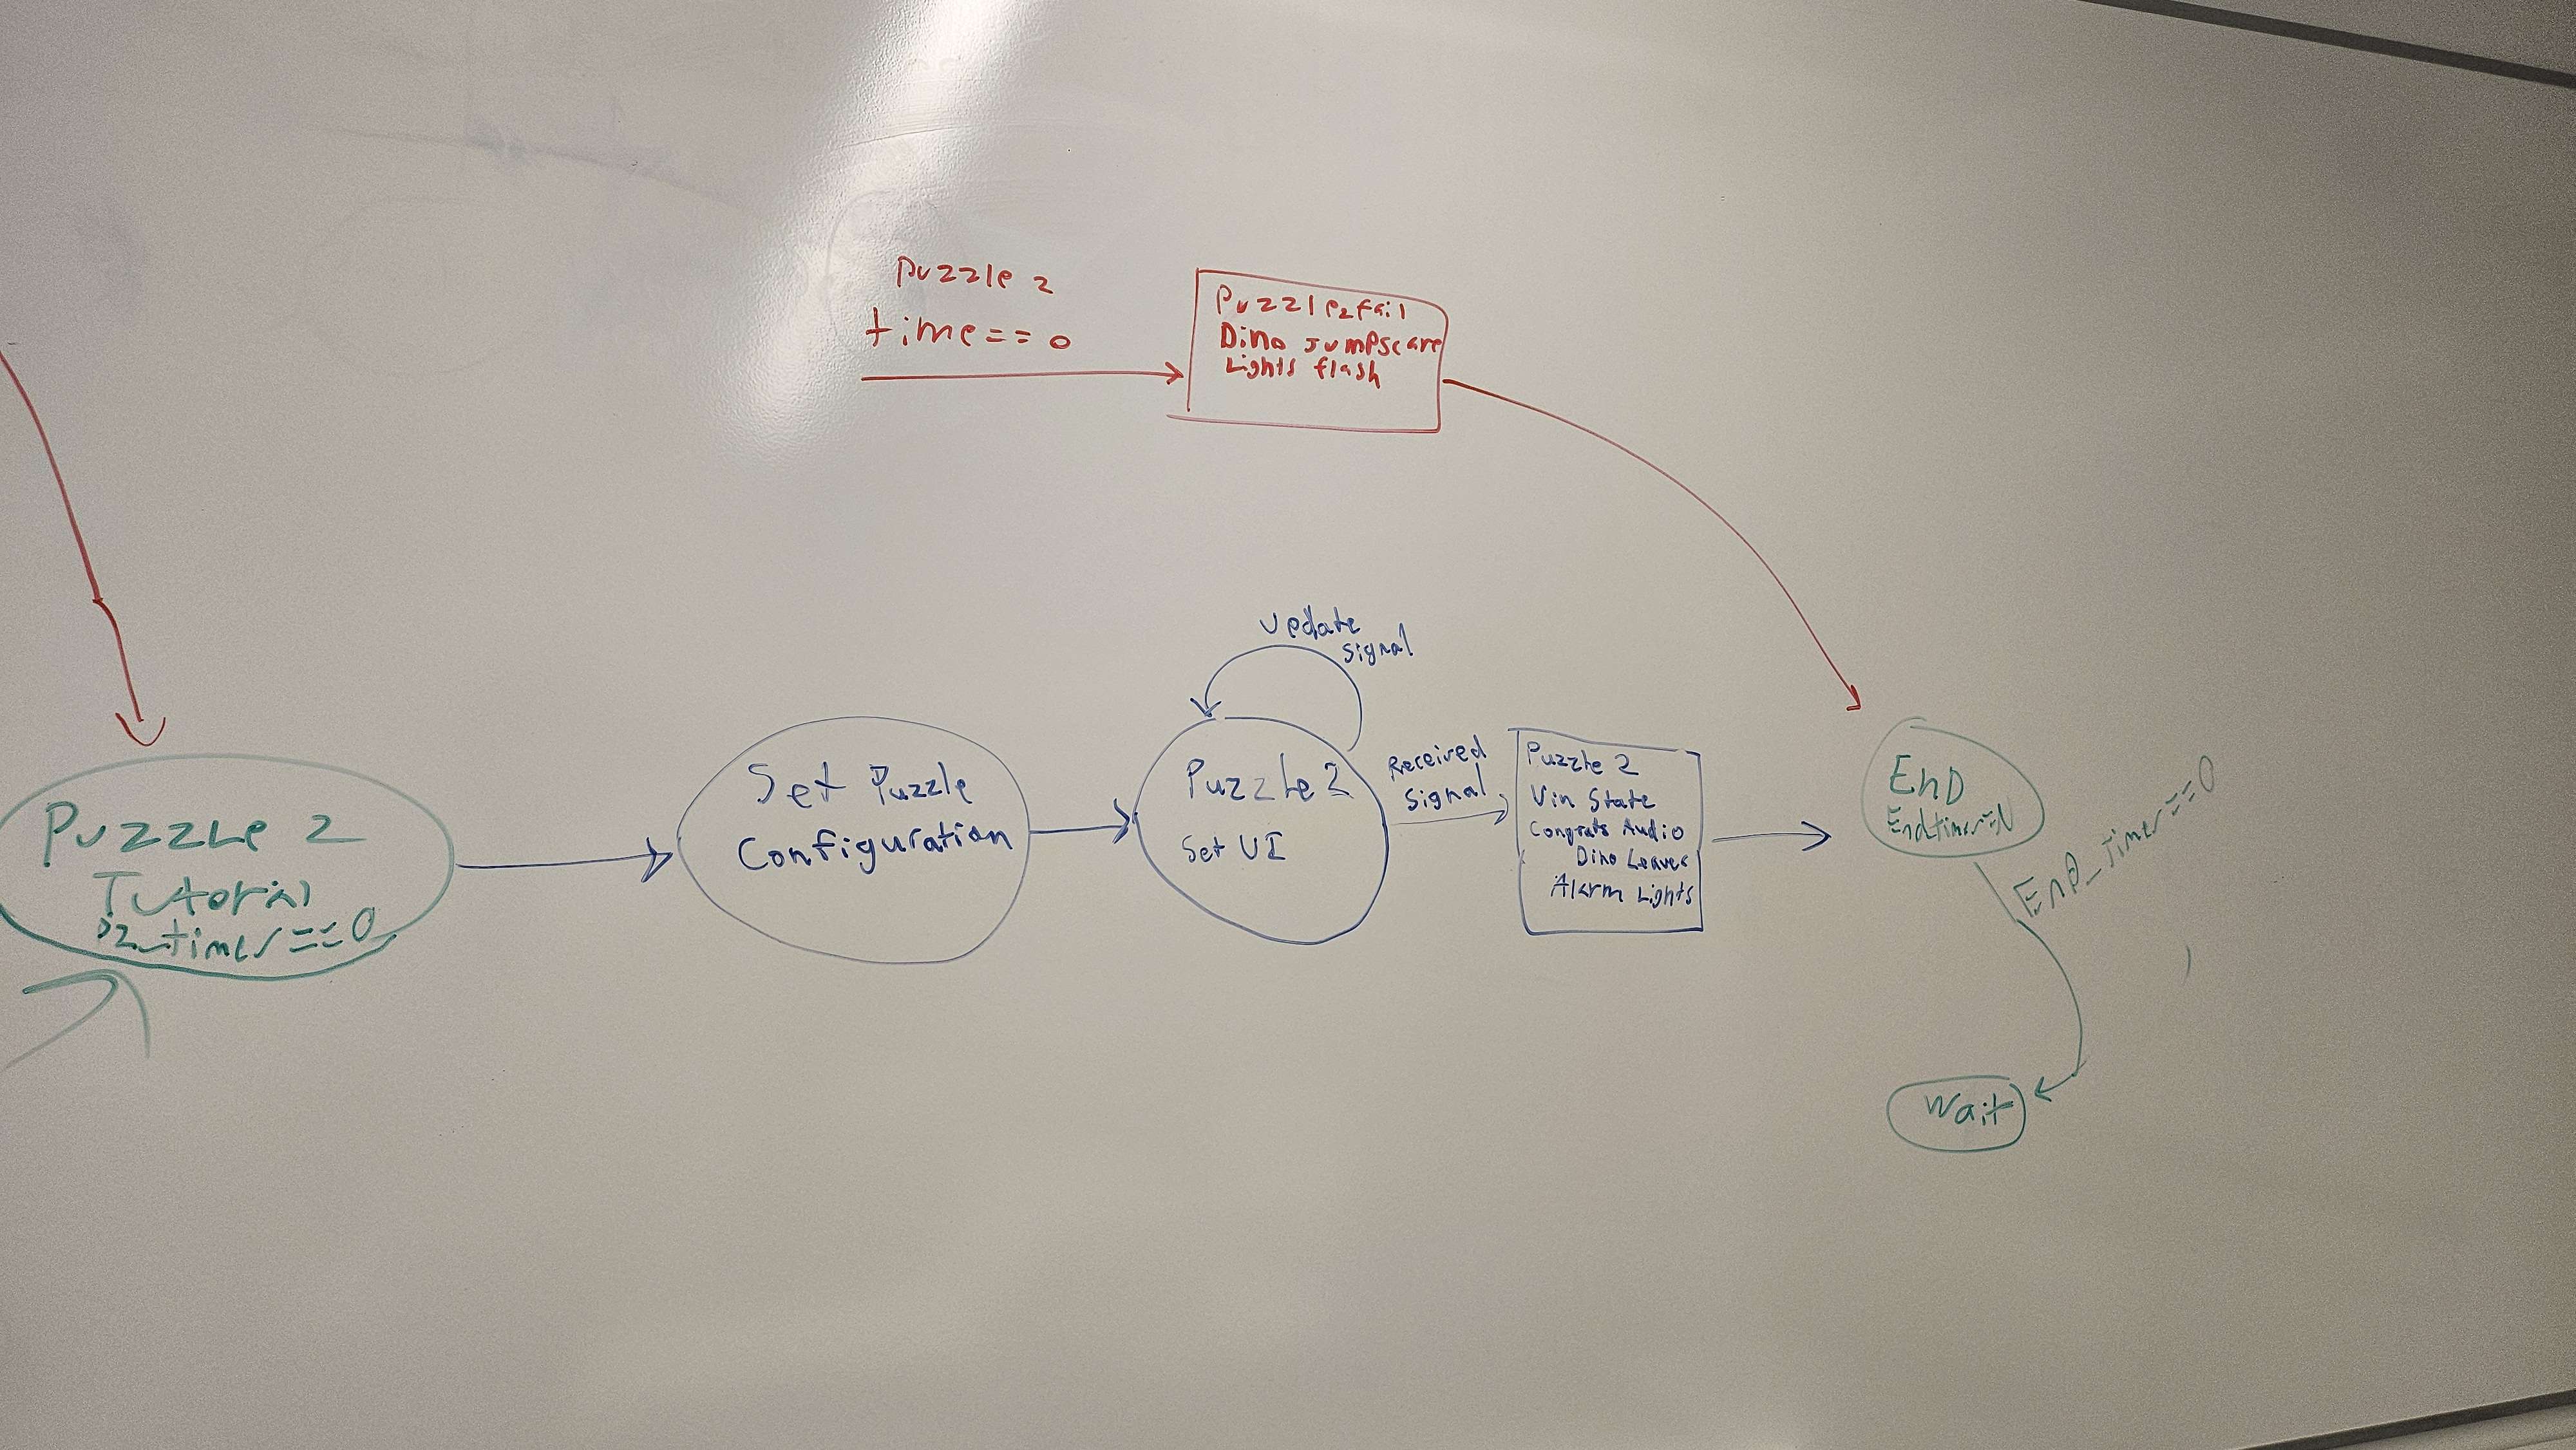 Puzzle 2
time==0
Puzzle2fail
Dino Jumpscare
Lights flash
Update
Signal
Puzzle 2
Tutorial
P2_timer==0
Set Puzzle
Configuration
Puzzle 2
Set UI
Received
Signal
Puzzle 2
Vin State
Congrats Audio
Dino Leaves
Alarm Lights
EnD
EnD_timer==0
Wait